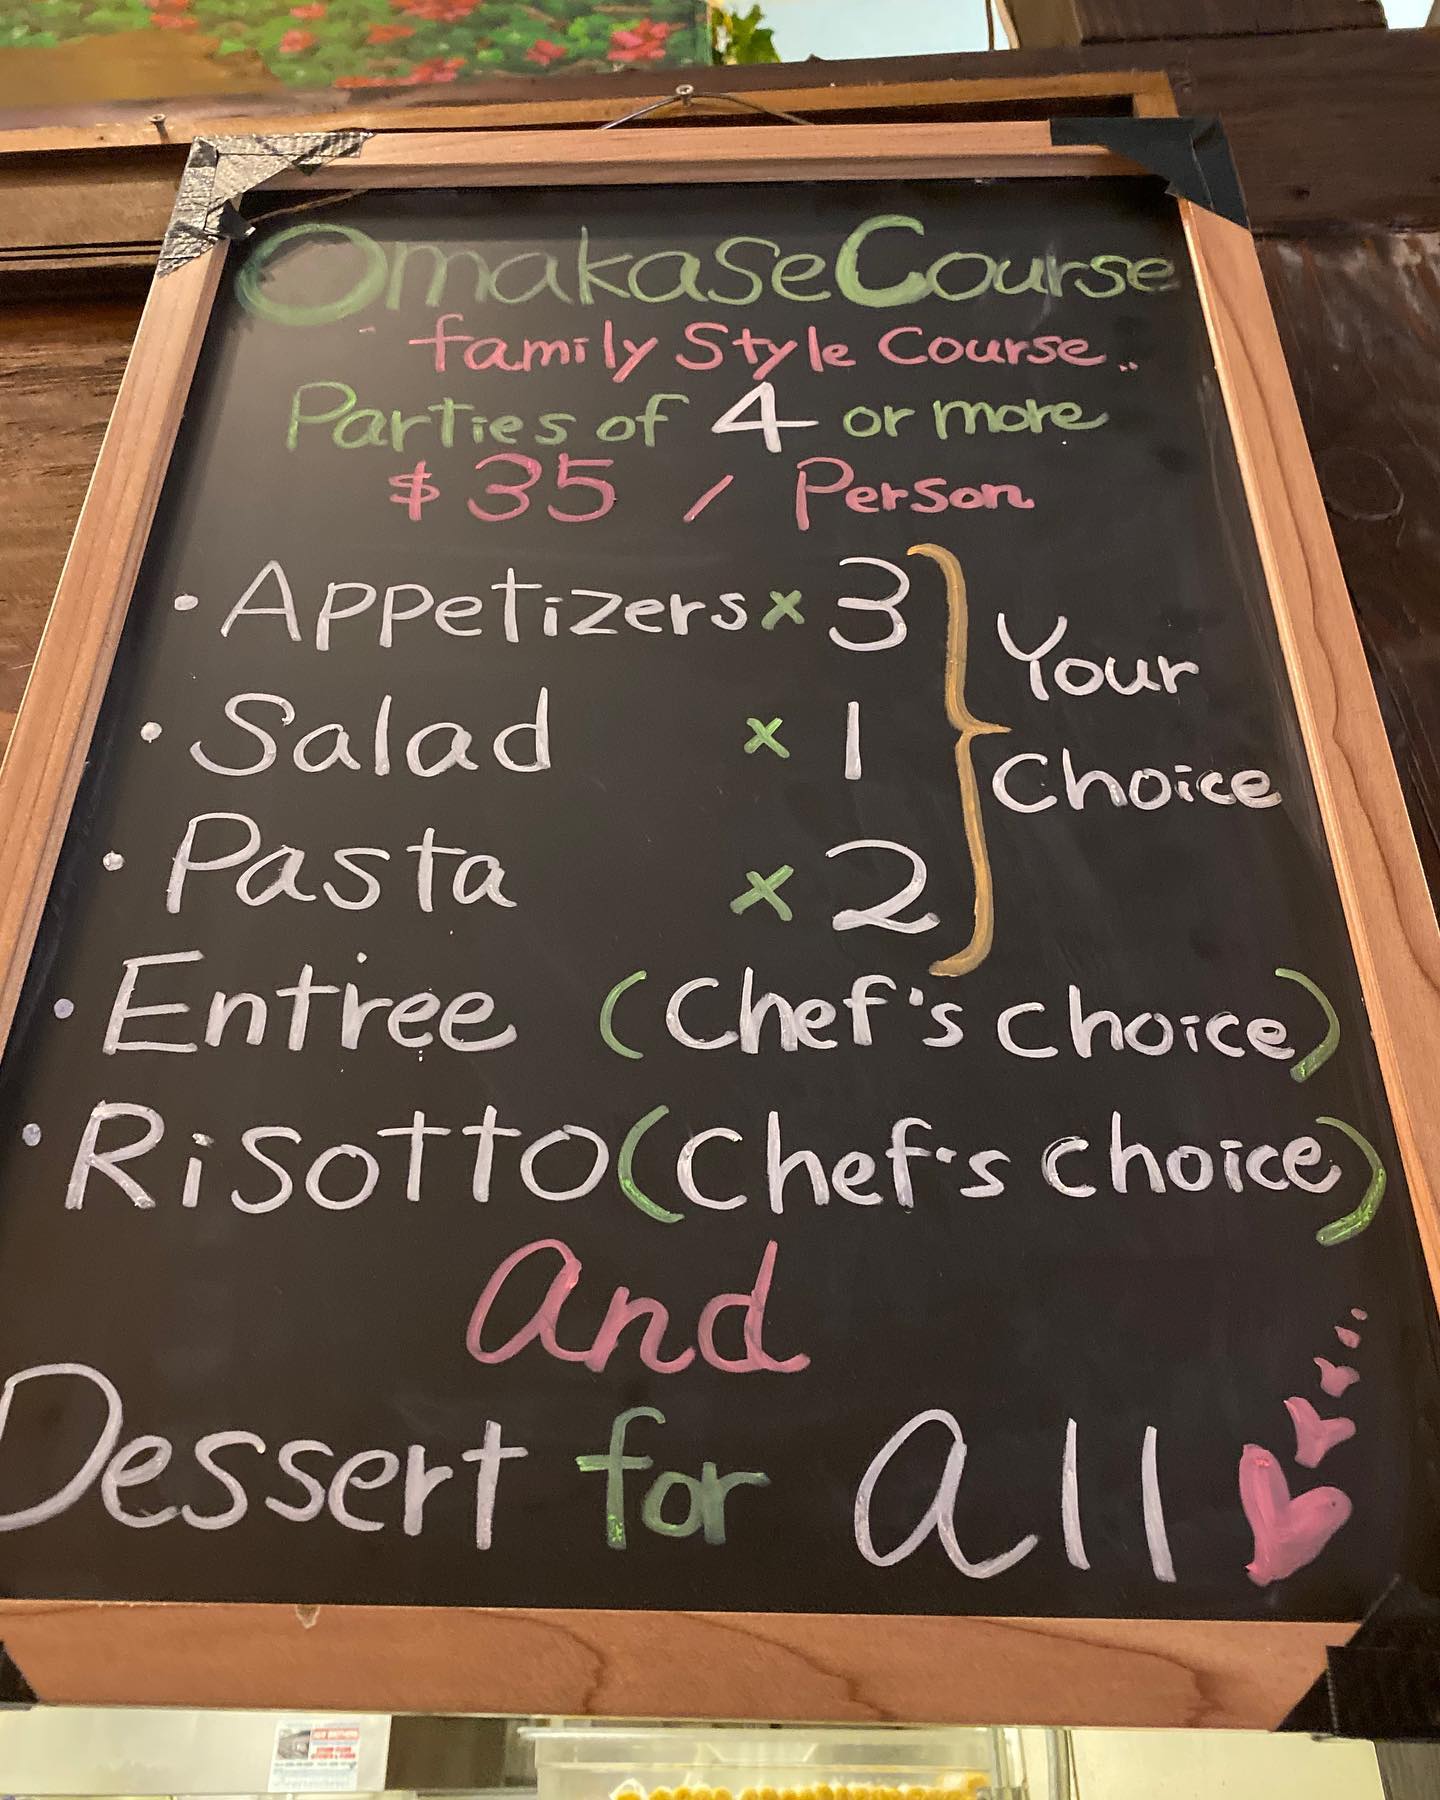 Omakase Course
family Style Course
Parties of 4 or more
$35 / Person
• Appetizers x 3
• Salad x 1
• Pasta x 2
Your Choice
• Entree (Chef's choice)
• Risotto (Chef's choice)
and
Dessert for all